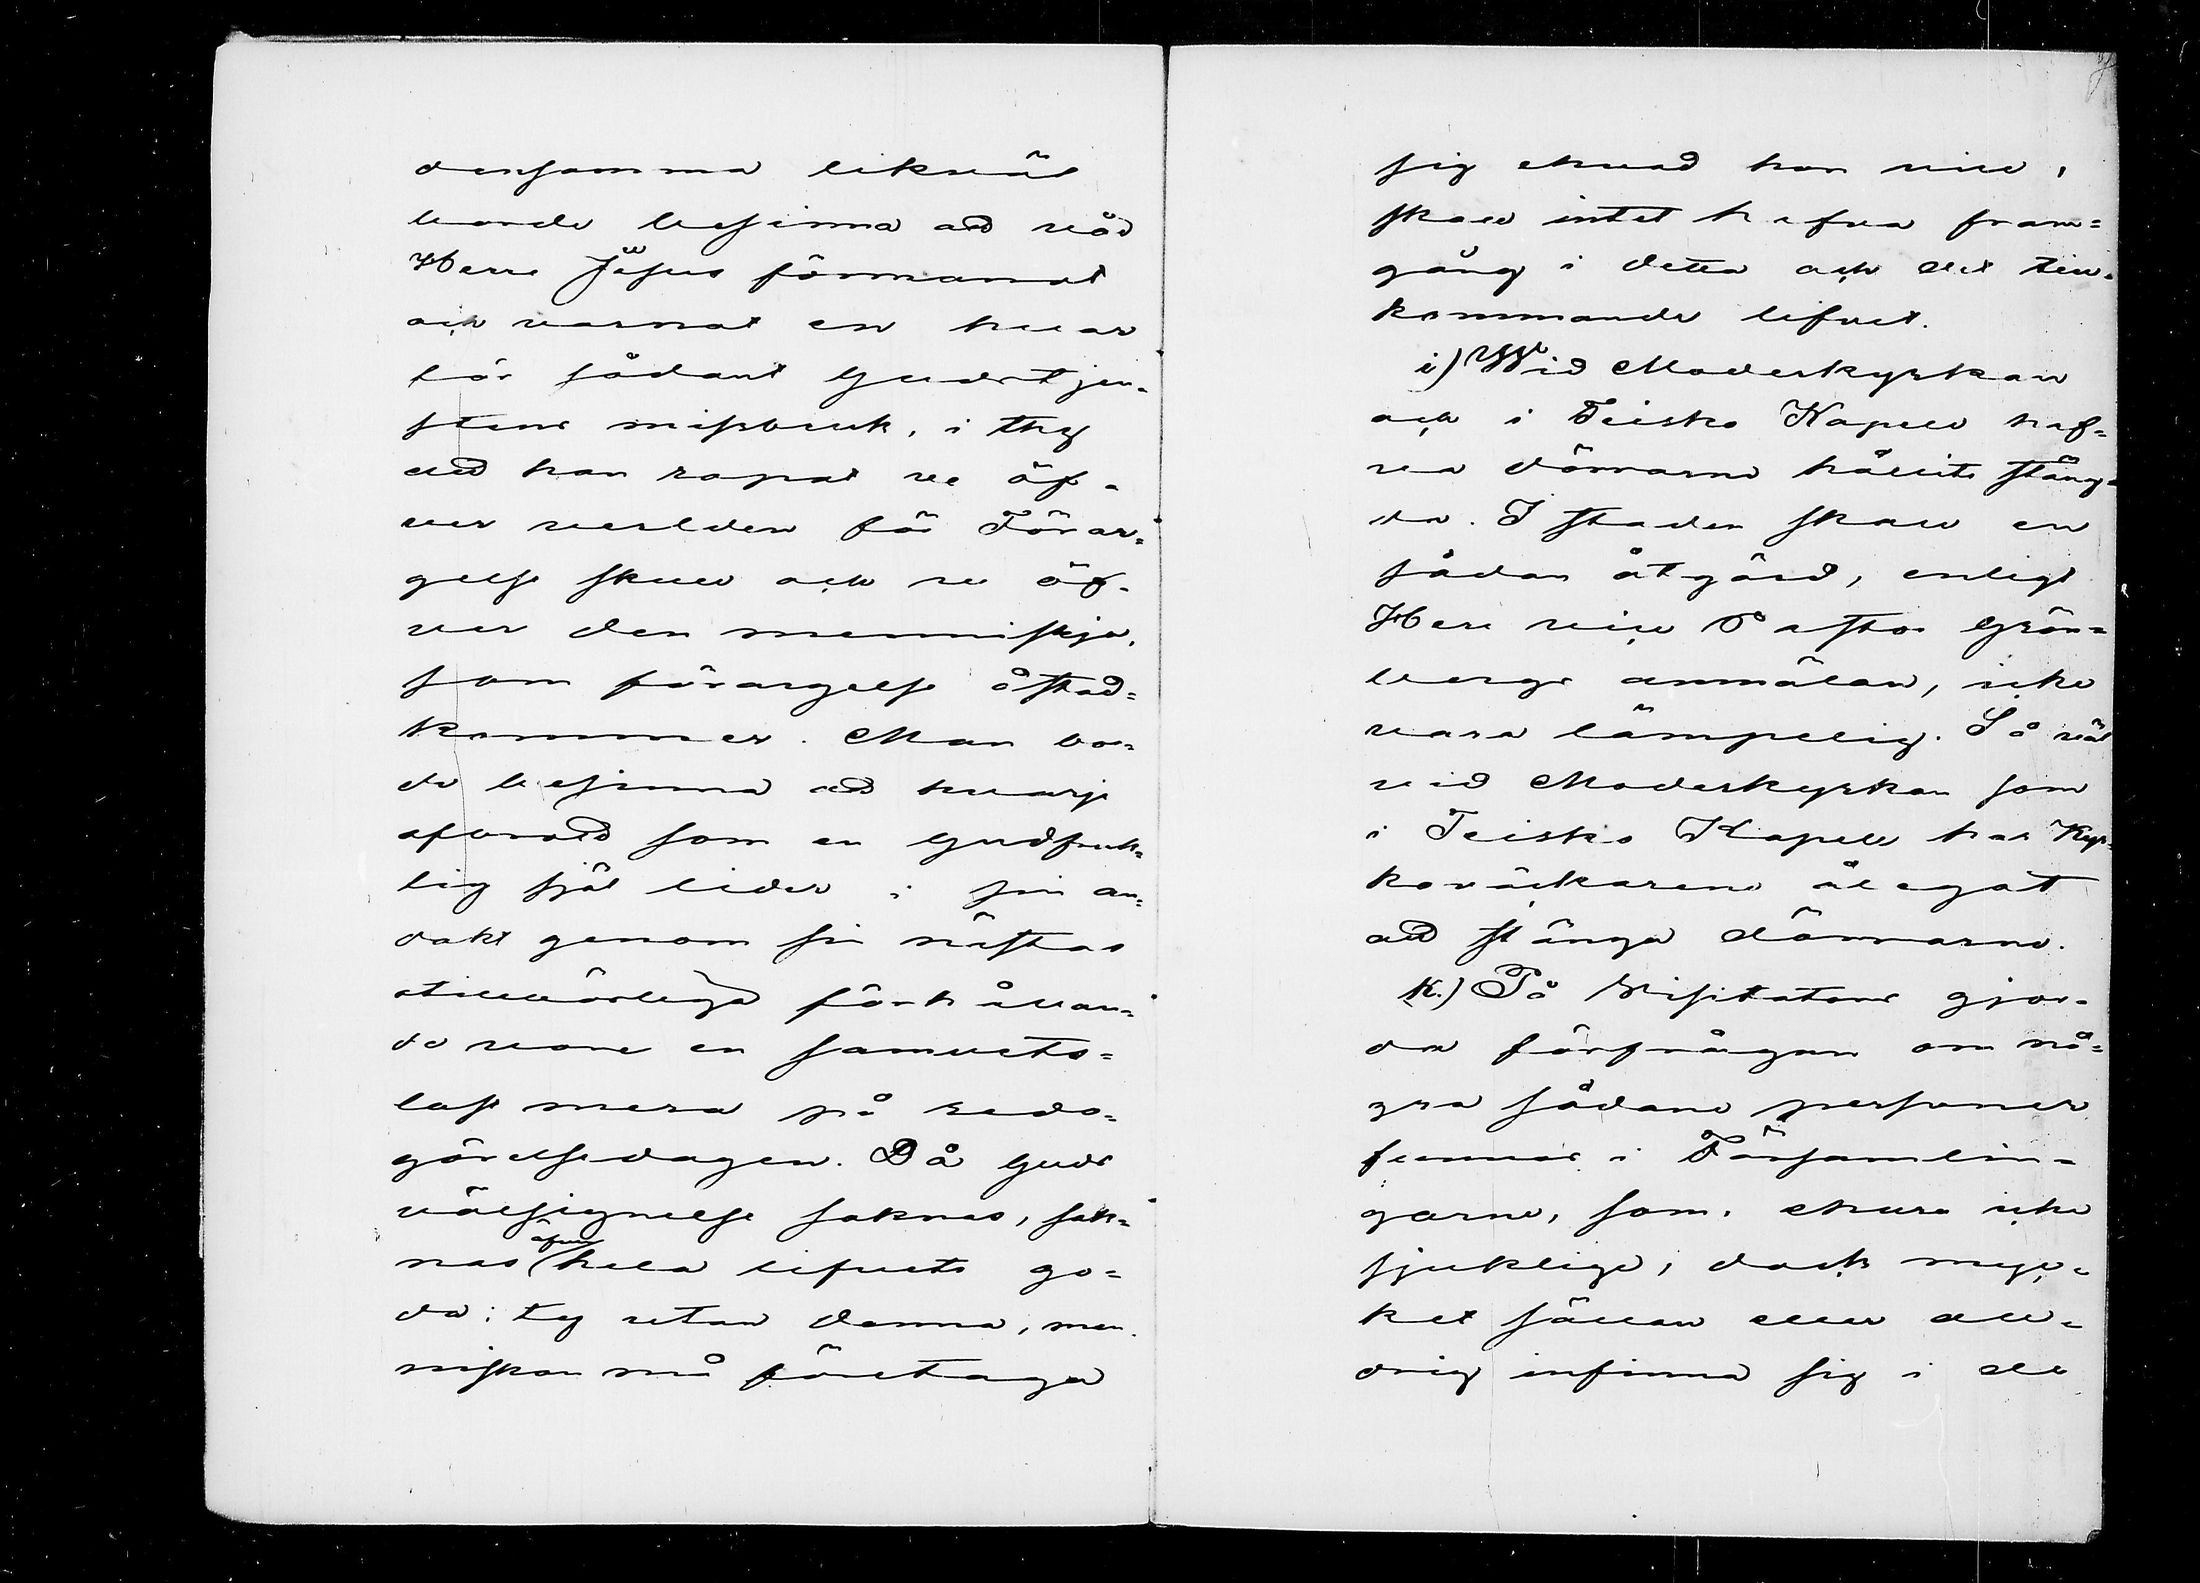 densamma likväl
borde besinna att vår
Herre Jesus förmanat
och varnat en hvar
för sådant Gudstjen-
stens missbruk, i thy
att han ropat ve öf-
ver verlden för Förar-
gelse skull och ve öf-
ver den menniskja,
som förargelse åstad-
kommer. Man bor-
de besinna att hvarje
afbrott som en Gudfruk-
tig själ lider i sin an-
dakt genom sin nästas
otillbörliga förhållan-
de vore en samvets-
last mera på redo-
görelsedagen. Då Guds
välsignelse saknas, sak-
nas äfven hela lifvets go-
da; ty utan denna, men-
niskan må företaga
sig ehvad hon vill,
skall intet hafva fram-
gång i detta och det till-
kommande lifvet.
i) Wid Moderkyrkan
och i Teisko Kapell haf-
va dörrarne hållits stäng-
da. I staden skall en
sådan åtgärd, enligt
Herr vice Pastor Grön-
bergs anmälan, icke
vara lämpelig. Så väl
vid Moderkyrkan som
i Teisko Kapell har Kyr-
koväckarene ålegat
att stänga dörrarne.
k.) På Visitators gjor-
da förfrågan om nå-
gra sådane personer
funnos i Församlin-
garne, som, ehuru icke
sjuklige, dock myc-
ket sällan eller all-
drig infinna sig i de